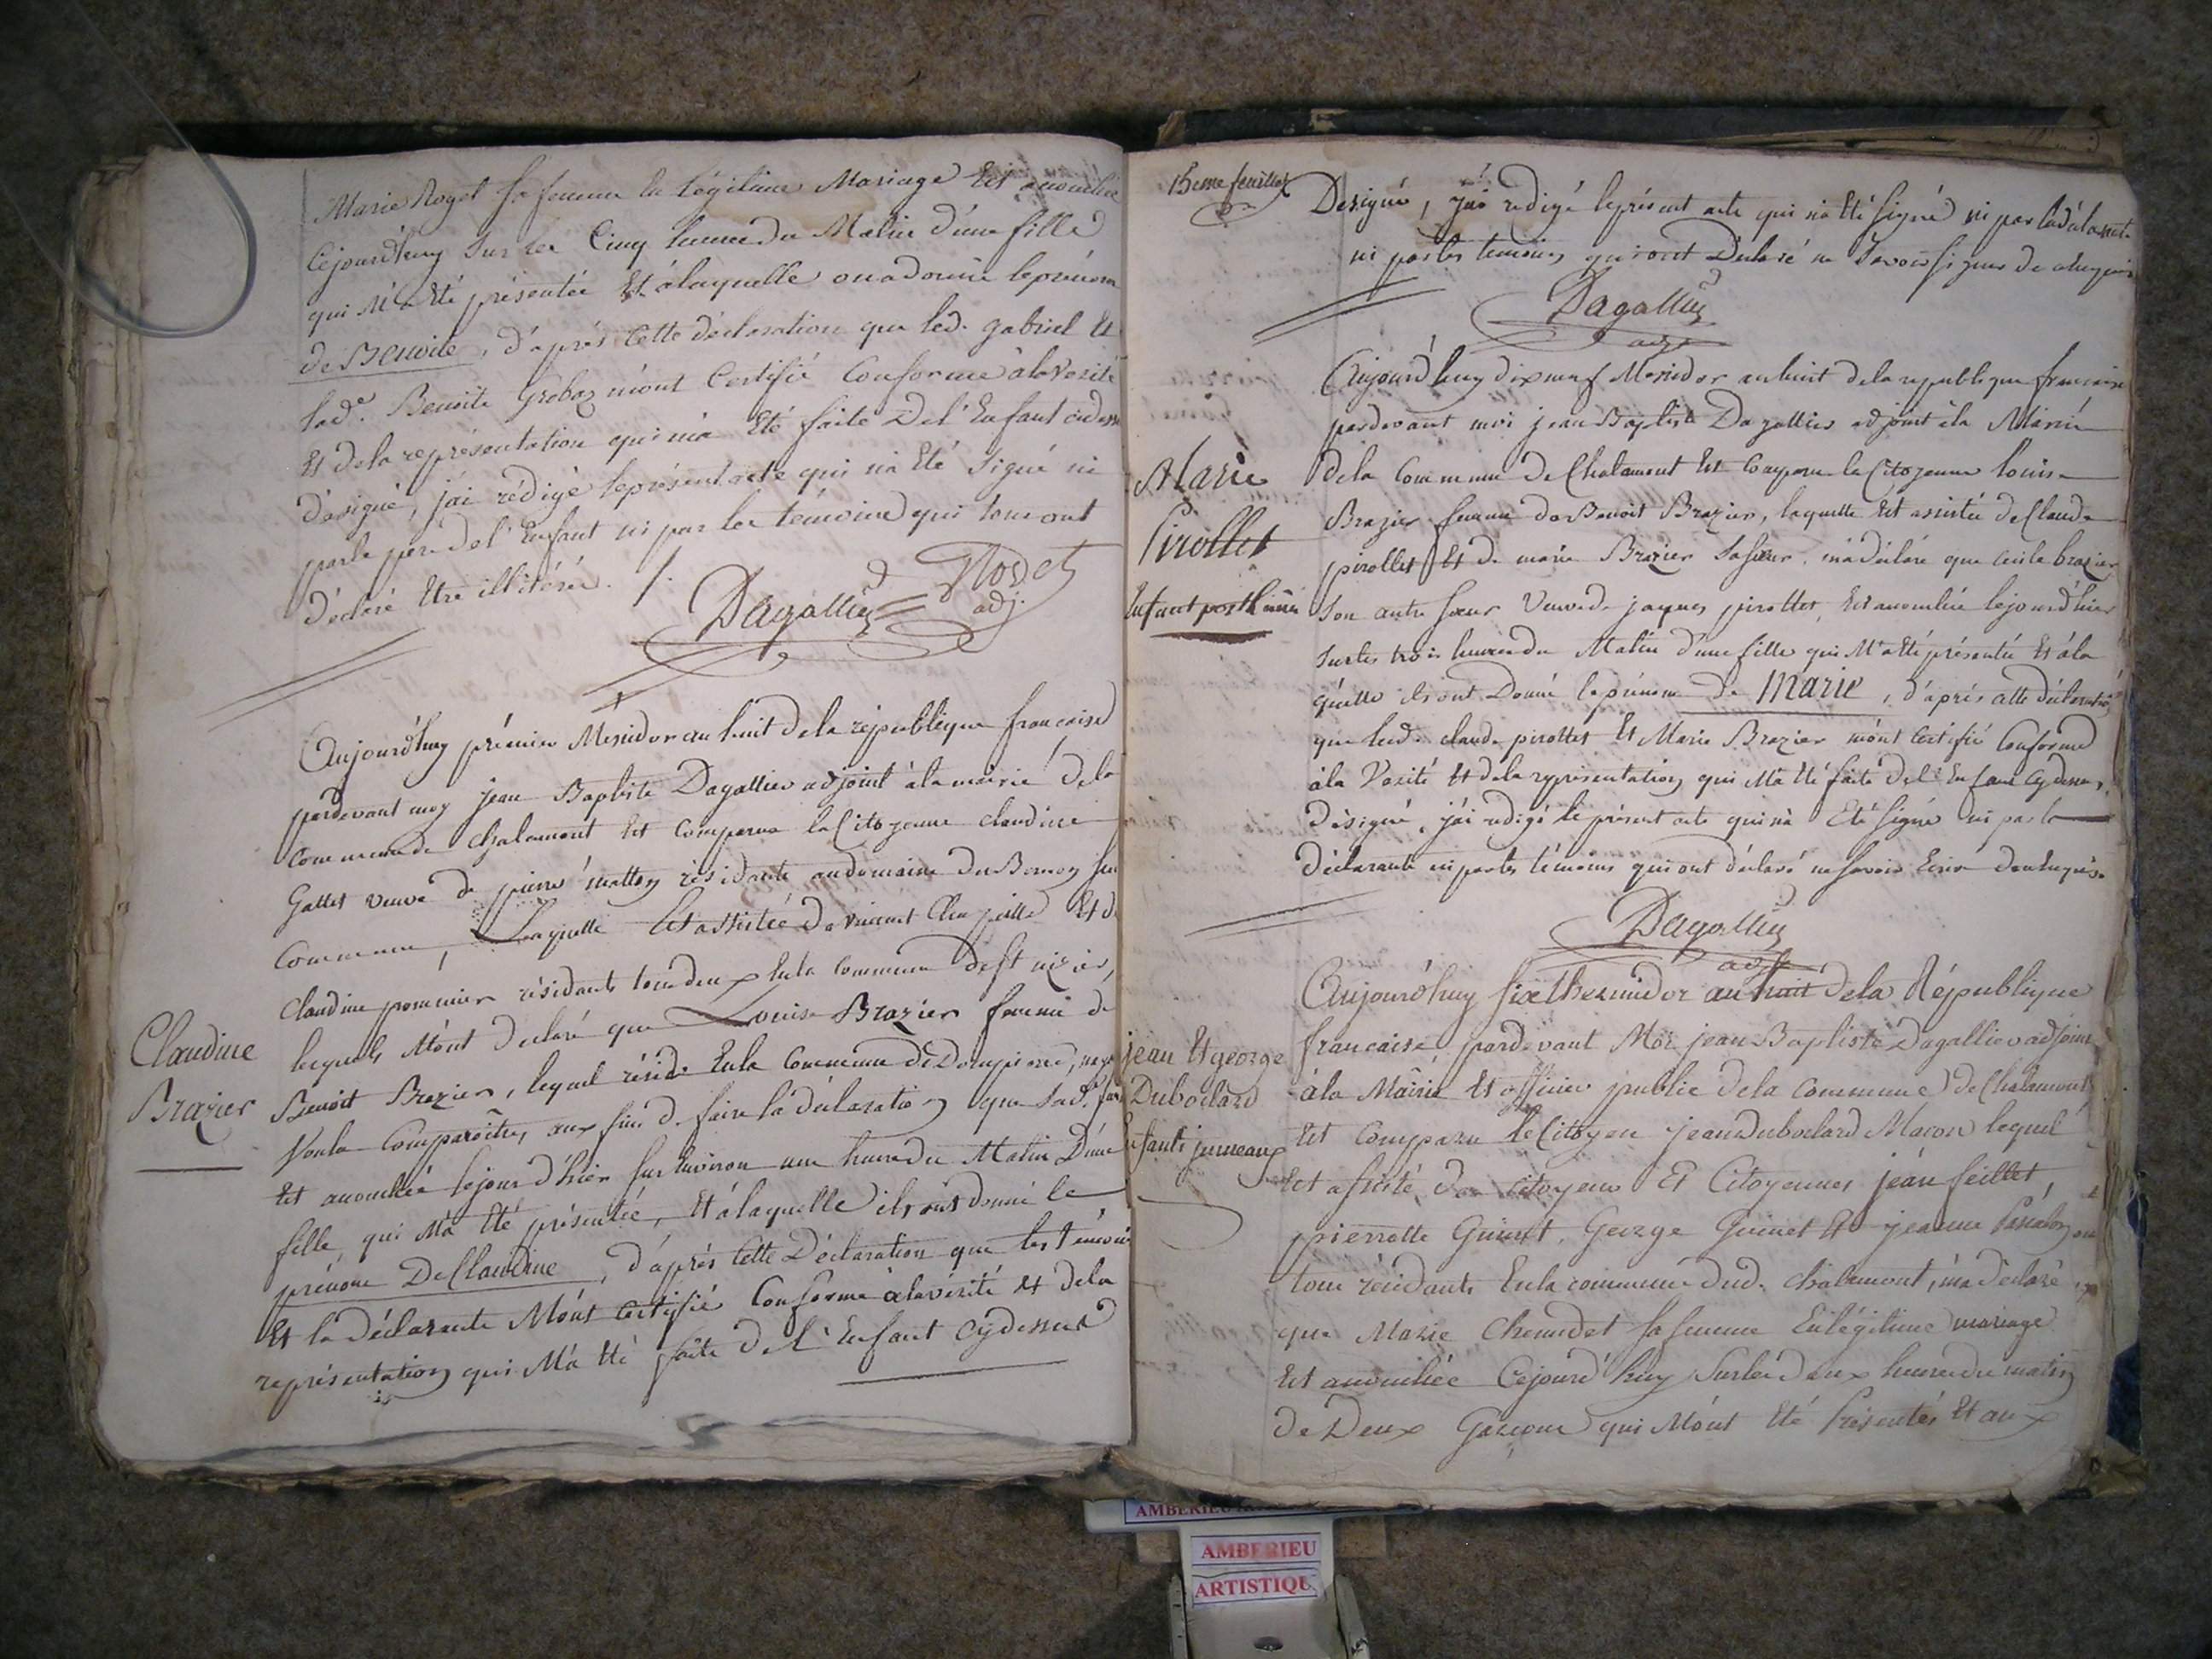 Marie Royet sa femme en légitime Mariage Est accouchée
Cejourd'huy sur les Cinq heures du Matin d'une fille
qui M'a Eté présentée Et à laquelle on a donné le prénom
de Benoite, d'après Cette déclaration que led. gabriel Et
lad.e Benoite Grobaz m'ont Certifié Conforme à la Vérité
Et de la représentation qui m'a Eté faite De l'Enfant cidessus
désigné, j'ai rédigé le présent acte qui n'a Eté Signé ni
par le père de l'Enfant ni par les témoins qui tous ont
déclaré Etre illitérés.
Dagallier
adj.
Claudine
Brazier
Aujourd'huy prémier Messidor an huit de la république francaise
pardevant moy jean Baptiste Dagallier adjoint à la mairie de la
Commune de Chalamont Est Comparue la Citoyenne claudine
Gallet veuve de pierre résidante au domaine du
Commune, Laquelle Est assistée de vincent Et de
Claudine pommier résidants tous deux En la Commune de St nizier,
lesquels M'ont déclaré que Louise Brazier femme de
Benoit Brazier, lequel réside En la Commune de Dompierre,
Voulu Comparoître, aux fins de faire la déclaration que sad.
Est accouchée le jour d'hier sur Environ une heure du Matin D'une
fille, qui M'a Eté présentée, Et à laquelle ils ont donné le
prénom De Claudine, d'après Cette Déclaration que les témoins
Et la déclarante M'ont Certifié Conforme à la vérité Et de la
représentation qui M'a Eté faite De l'Enfant Cydessus
15eme feuillet
Designé, j'ai redigé le présent acte qui n'a Eté signé ni par la déclarante
ni par les temoins qui ont Déclaré ne Savoir signer de ce enquis
Dagallier
adj.
Marie
Pirollet
Enfant posthume
Aujourd'huy dix neuf Messidor an huit de la republique francaise
pardevant moi jean Baptiste Dagallier adjoint à la Mairie
de la Commune De Chalamont Est Comparue la Citoyenne louise
Brazier femme de Benoit Brazier, laquelle Est assistée de Claude
pirollet Et de marie Brazier sa sœur, m'a déclaré que brazier
son autre sœur Veuve de jaques pirollet, Est accouchée le jour d'hier
sur les trois heures du Matin d'une fille qui M'a Eté présentée Et à la
quelle ils ont Donné le prénom de Marie, d'après cette déclaration
que led. claude pirollet Et Marie Brazier m'ont Certifié Conforme
à la Vérité Et de la représentation qui M'a Eté faite De l'Enfant Cydessus
désigné, j'ai redigé le présent acte qui n'a Eté signé ni par la
déclarante ni par les témoins qui ont déclaré ne savoir Ecrire de ce Enquis.
Dagallier
adj.
jean Et george
Duboclard
Enfants jumeaux
Aujourd'huy six thermidor an huit de la République
francaise, pardevant Moi jean Baptiste Dagallier adjoint
à la Mairie Et officier public de la Commune de Chalamont
Est Comparu le Citoyen jean Duboclard Macon lequel
Est assisté des Citoyens Et Citoyennes jean feillet,
pierrette Guinet, George Guinet Et jeanne
tous résidants En la commune dud. Chalamont, m'a déclaré
que Marie Chenudet sa femme En légitime mariage
Est accouchée Cejourd'huy Sur les deux heures du matin
de Deux Garcons qui M'ont Eté Présentés Et aux
AMBERIEU
AMBERIEU
ARTISTIQU